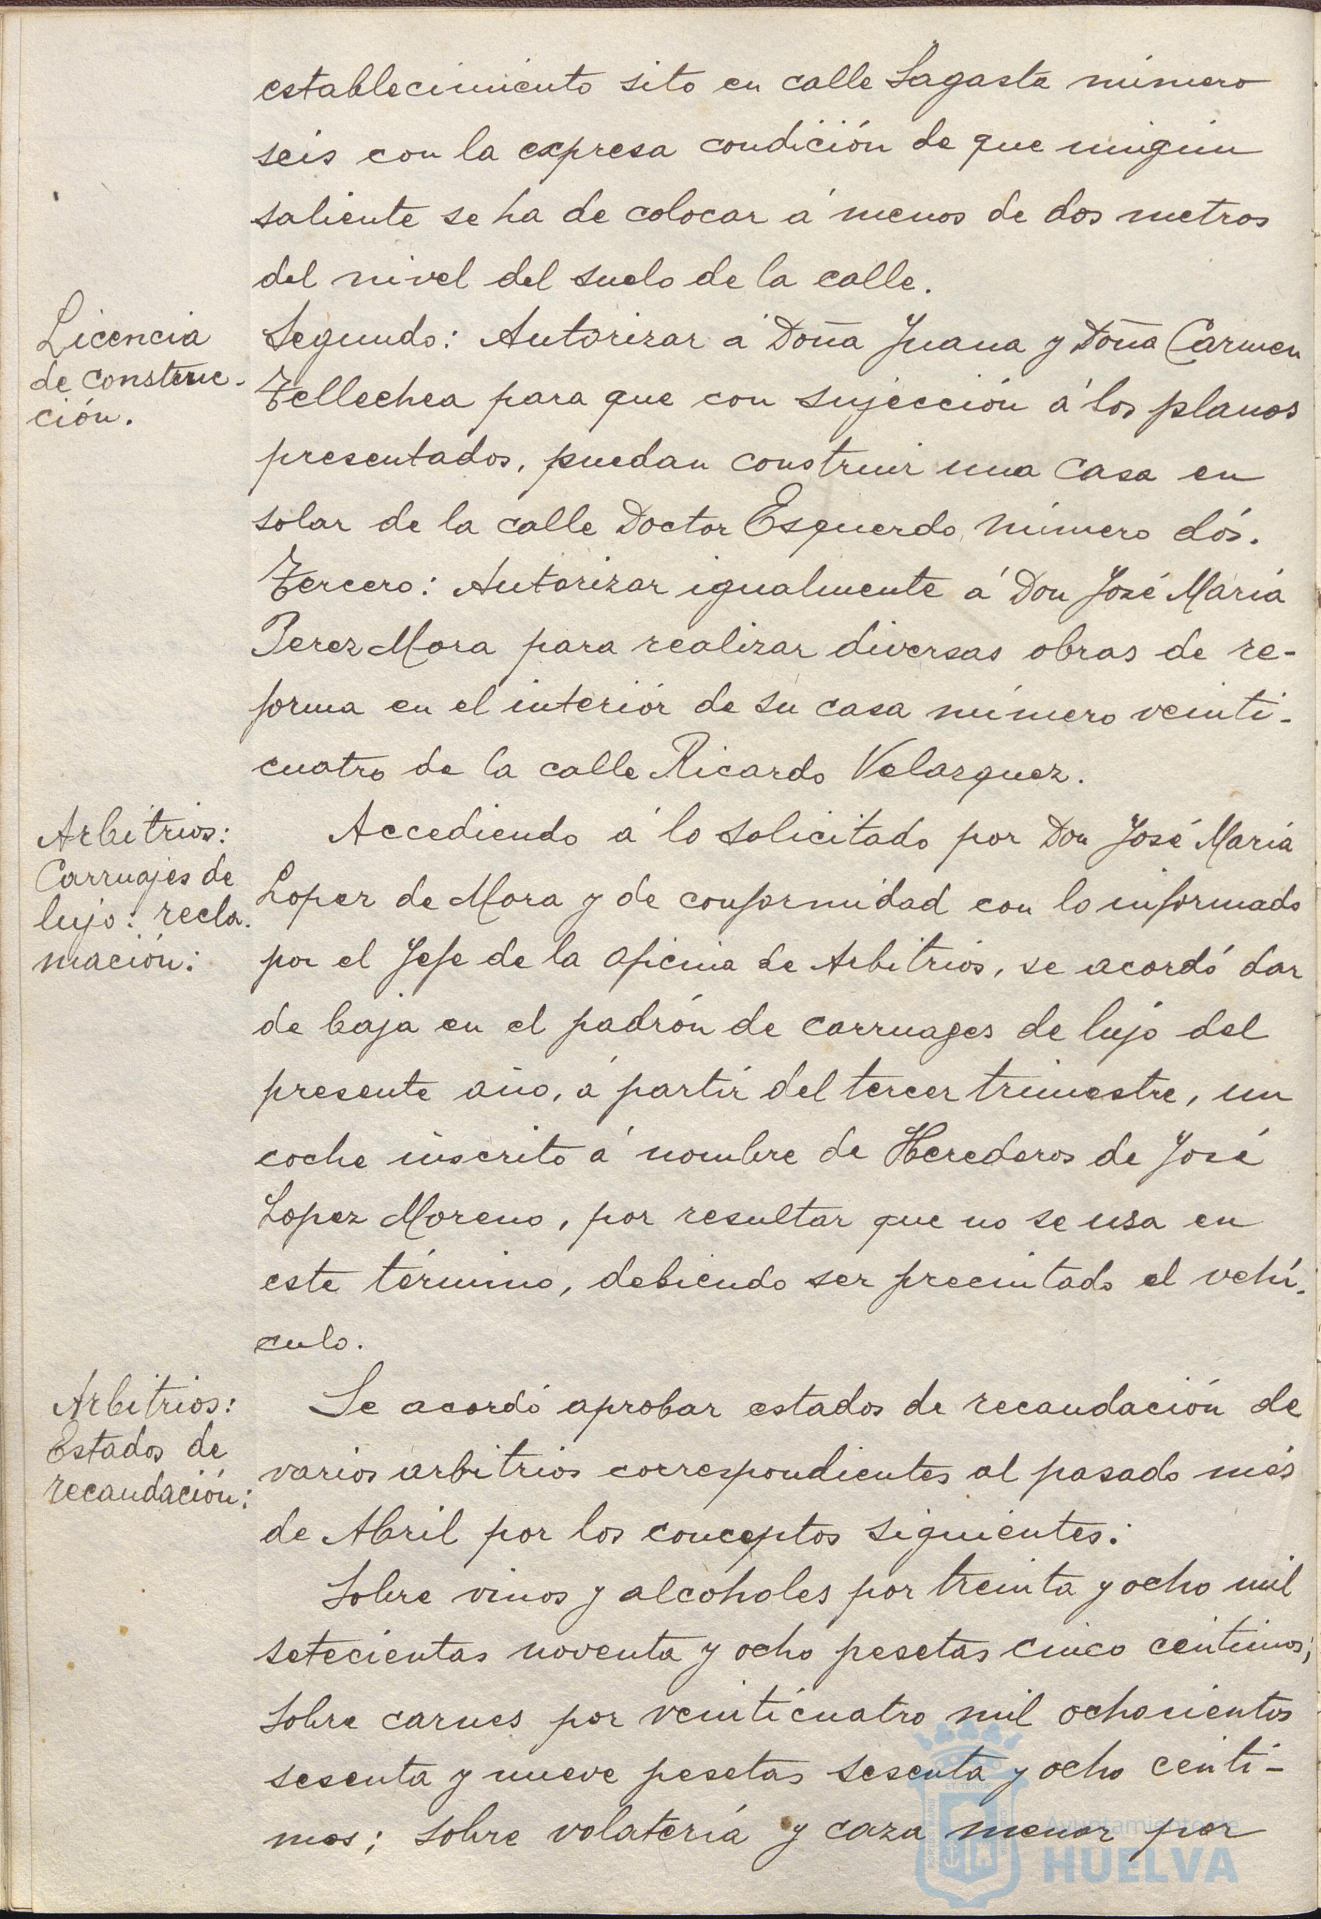 establecimiento sito en calle Sagasta número
seis con la expresa condición de que ningún
saliente se ha de colocar á menos de dos metros
del nivel del suelo de la calle.
Licencia
de construc-
ción.
Segundo: Autorizar á Doña Juana y Doña Carmen
Tellechea para que con sujección á los planos
presentados, puedan construir una casa en
solar de la calle Doctor Esquerdo número dós.
Tercero: Autorizar igualmente á Don José María
Perez Mora para realizar diversas obras de re-
forma en el interiór de su casa número veinti-
cuatro de la calle Ricardo Velazquez.
Arbitrios:
Carruajes de
lujo: recla-
mación:
Accediendo á lo solicitado por Don José María
Lopez de Mora y de conformidad con lo informado
por el Jefe de la oficina de Arbitrios, se acordó dar
de baja en el padrón de carruages de lujo del
presente año, á partir del tercer trimestre, un
coche inscrito á nombre de Herederos de José
Lopez Moreno, por resultar que no se usa en
este término, debiendo ser precintado el vehí-
culo.
Arbitrios:
Estados de
recaudación:
Se acordó aprobar estados de recaudación de
varios arbitrios correspondientes al pasado més
de Abril por los conceptos siguientes:
Sobre vinos y alcoholes por treinta y ocho mil
setecientas noventa y ocho pesetas cinco centimos;
sobre carnes por veinticuatro mil ochocientos
sesenta y nueve pesetas sesenta y ocho centi-
mos; sobre volatería y caza menor por
Ayuntamiento de
HUELVA